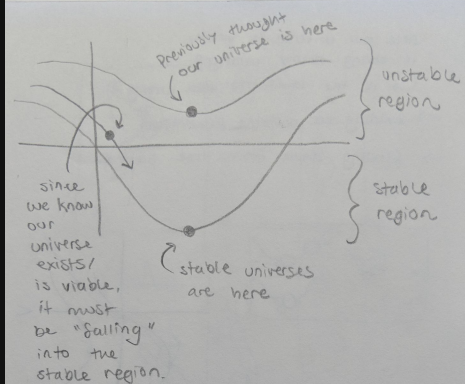 Previously thought
our universe is here
unstable
region
stable
region
since
we know
our
universe
exists/
is viable,
it must
be "falling"
into the
stable region.
stable universes
are here